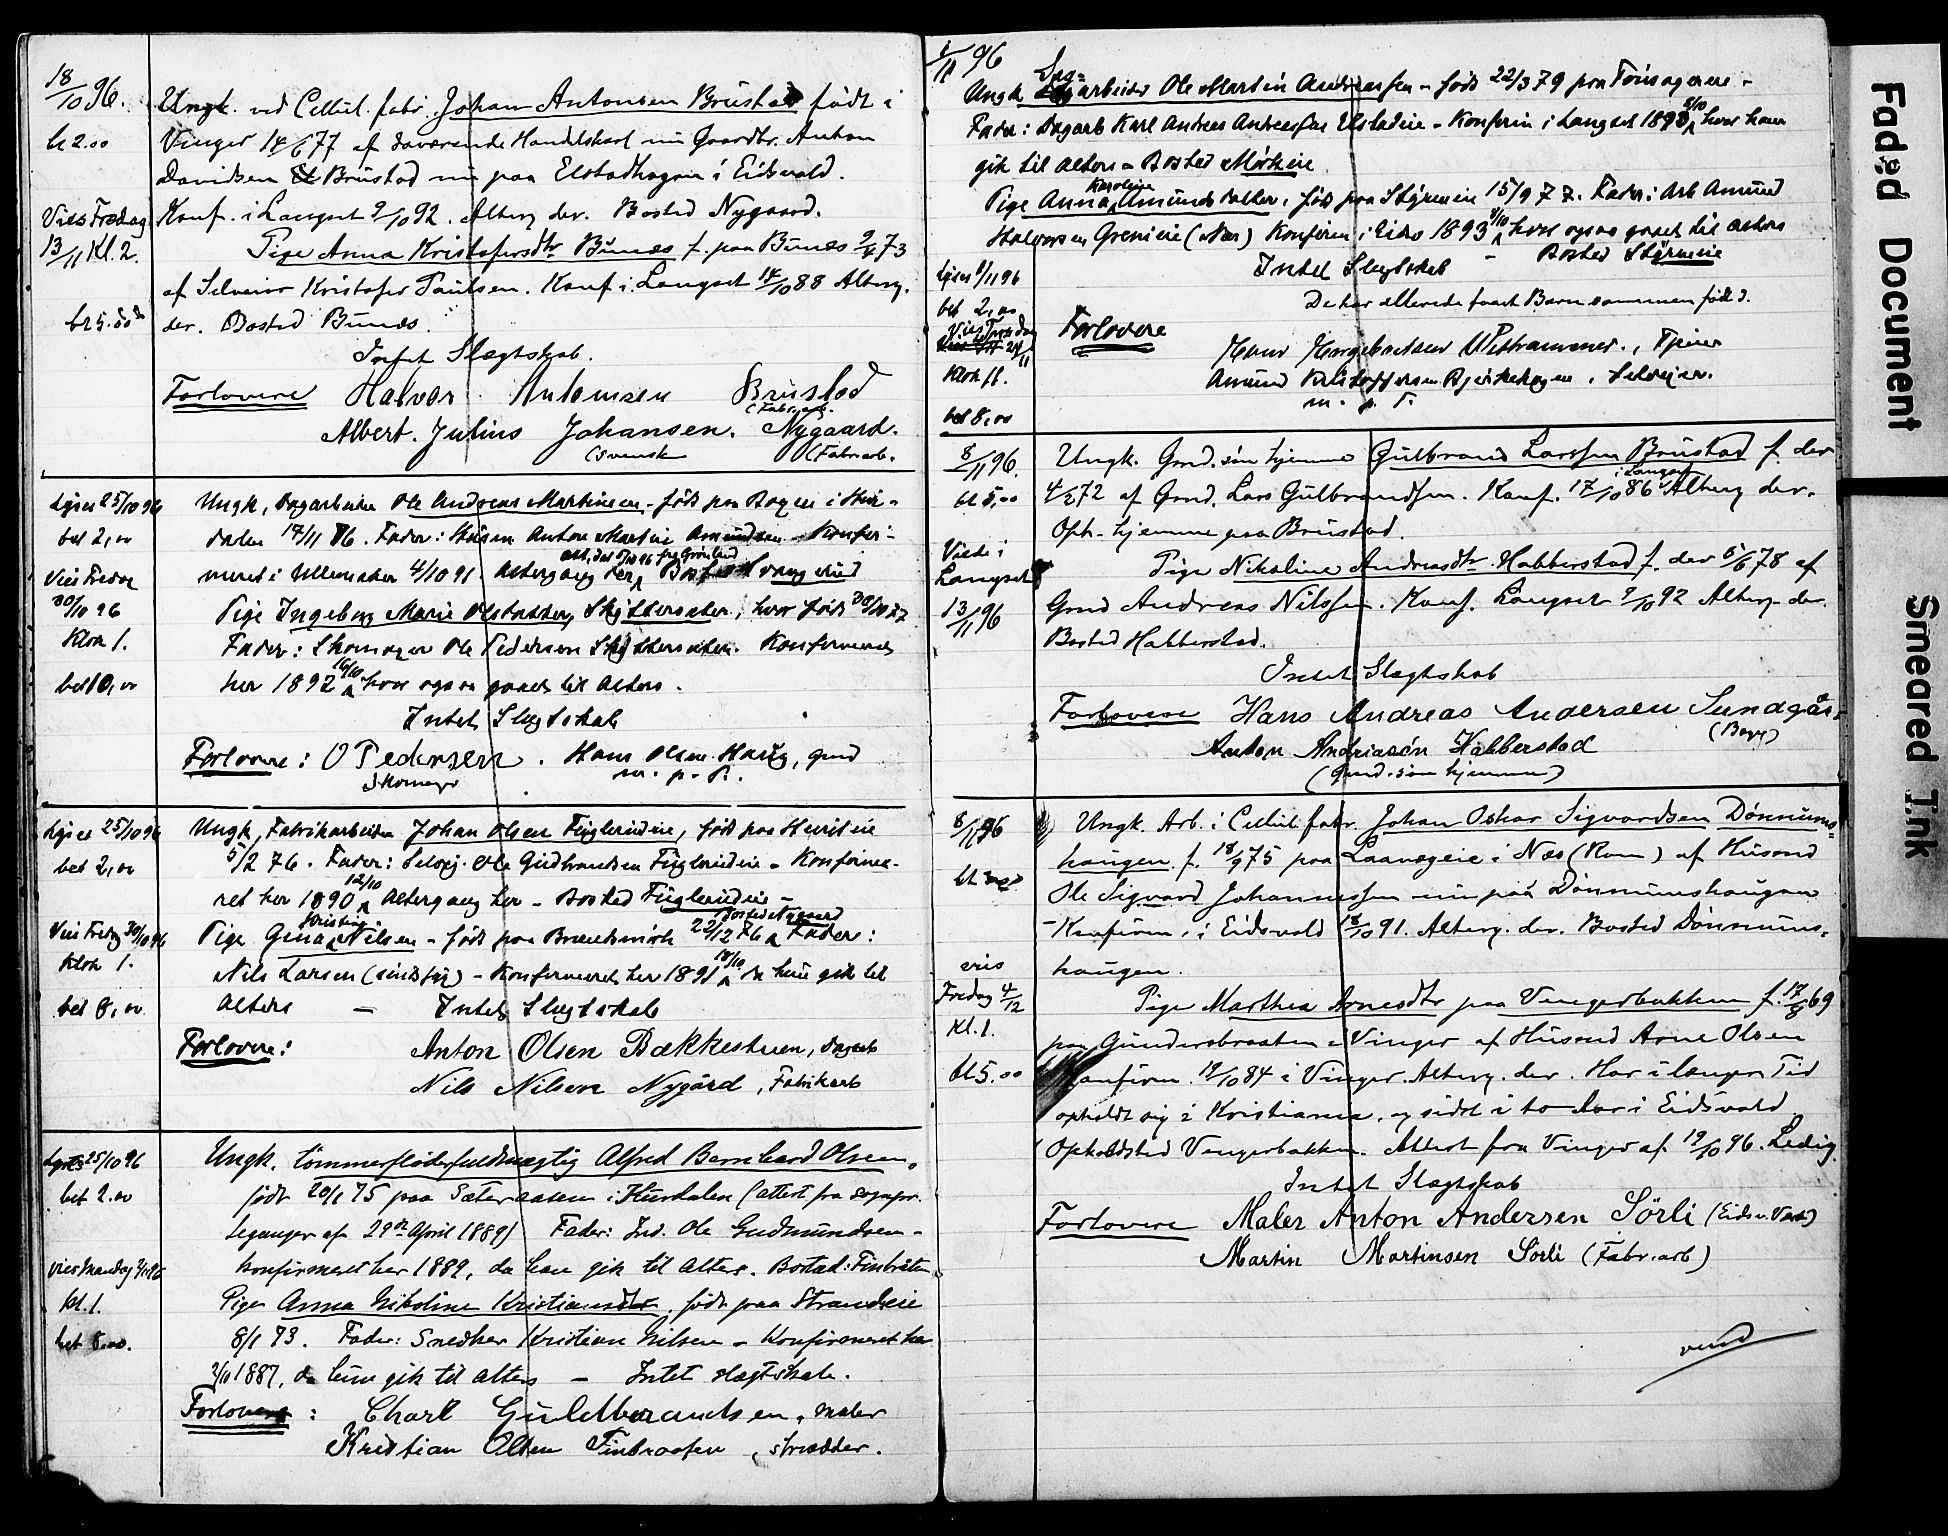 18/10 96.
Ungk. ved Cellul. fabr. Johan Antonsen Brustad født i
bt 2.00
Vinger 14/6 77 af daværende Handelskarl nu Gaardbr. Anton
Davidsen Brustad nu paa Elstadhagen i Eidsvold.
Vies Fredag
Konf. i Langset 9/10 92. Alterg. der. Bosted Nygaard.
13/11 Kl. 2.
Pige Anna Kristofersdtr Bunæs f. paa Bunæs 9/4 73
af Selveier Kristofer Paulsen. Konf. i Langset 14/10 88 Alterg.
bt 5.00
der. Bosted Bunæs.
Intet Slægtskab.
Forlovere Halvor Antonsen Brustad
(Fabr.arb.
Albert Julius Johansen. Nygaard.
(svensk (Fabr.arb.
Lyses 25/10 96
Ungk, Dagarbeider Ole Andreas Martinsen - født paa Bogen i Hur-
bet 2,00
dalen 17/11 76. Fader: Husm Anton Martin Amundsen - Konfir-
meret i Ullensaker 4/10 91. Altergang her,
Vies Fredag
30/10 96
Pige Ingeborg Marie Olsdatter, Skyttersæter, hvor født 30/10 77
Klok 1.
Fader: Skomager Ole Pedersen Skyttersæter. Konfirmeret
bet 10,00
her 1892 16/10 hvor ogsaa gaaet til Alters.
Intet Slægtskab
Forlovere: O Pedersen. Hans Olsen Haug, grmd
Skomager m. p. P.
Lyses 25/10 96
Ungk, Fabrikarbeider Johan Olsen Fuglerudeie, født paa Hurideie
bet 2,00
5/2 76. Fader: Selvej. Ole Gudbrandsen Fuglerudeie - Konfirme-
ret her 1890 12/10 Altergang her - Bosted Fuglerudeie -
Kristine Bosted Nygaard
Vies Fredag 30/10 96
Pige Gina Nilsen - født paa Brændsmork 22/12 76 Fader:
Klok 1.
Nils Larsen (sindssyg) - Konfirmeret her 1891 18/10 da hun gik til
bet 8,00
Alters - Intet Slægtskab
Forlovere:
Anton Olsen Bækkestuen, Dagarb
Nils Nilsen Nygård, Fabrikarb
Lyses 25/10 96
Ungk. tømmerfløderfuldmægtig Alfred Bernhard Olsen,
bet 2.00
født 20/1 75 paa Sæteraasen i Hurdalen (attest fra sognepr.
Leganger af 29de April 1889) Fader: Ind. Ole Gudmundsen -
Vies Mandag
konfirmeret her 1889, da han gik til Alters. Bosted: Finbråten
Kl. 1.
Pige Anna Nikoline Kristiansdtr, født paa Strandeie
bet 8.00.
8/1 73. Fader: Snedker Kristian Nilsen - Konfirmeret her
2/10 1887, da hun gik til Alters - Intet slægtskab.
Forlovere: Charl Guldbrandsen, maler
Kristian Olsen Finbraaten, skrædder.
1/11 96
Dag-
Ungk arbeider Ole Martin Andreassen - født 22/3 79 paa Tønsagereie -
Fader: Dagarb Karl Andreas Andreassen Elstadeie - Konfirm i Langset 1893 8/10 hvor han
gik til Alters - Bosted Mörkeie
Karoline
Pige Anna Amundsdatter, født paa Styrieie 15/9 77. Fader: Arb Amund
Halvorsen Grenieie (Næs) Konfirm. i Eidsv 1893 8/10 hvor ogsaa gaaet til alters
Intet Slægtskab - Bosted Styrieie
Lyses 1/11 96
De har allerede faaet Barn sammen født
bet 2,00
Vies Fredag
27/11
Forlovere
Klok 11.
Amund Kristoffersen Bjerkehagen, Selveier.
m. p. P.
bet 8,00
8/11 96.
Ungk. Grmd. søn hjemme Gulbrand Larssen Brustad f. der
i Langset
bt 5,00
4/2 72 af Grmd. Lars Gulbrandsen. Konf. 17/10 86 Alterg der.
Oph. hjemme paa Brustad.
Viede i
Langset
Pige Nikoline Andreasdtr. Habberstad f. der 5/6 78 af
13/11 96
Grmd Andreas Nilssen. Konf. Langset 9/10 92 Alterg. der.
Bosted Habberstad.
Intet Slægtskab
Forlovere Hans Andreas Andersen Sundgår.
Anton Andriasón Habberstad
(Grmd. søn hjemme)
8/11 96
Ungk. Arb. i Cellul. fabr. Johan Oskar Sigvardsen Dønnums-
haugen f. 18/9 75 paa Laavægeie i Næs (Rom) af Husmd
Ole Sigvard Johannessen nu paa Dønnumshaugen
- Konfirm. i Eidsvold 18/10 91. Alterg. der. Bosted Dønnums-
vies
haugen.
Fredag 4/12
Pige Marthea Arnesdtr paa Vingerbakken f. 17/8 69
Kl. 1.
paa Gundersbraaten i Vinger af Husmd Arne Olsen
bt 5.00
Konfirm. 19/10 84 i Vinger. Alterg. der. Har i længre Tid
opholdt sig i Kristiania, og sidst i to Aar i Eidsvold
Opholdsted Vingerbakken. Attest fra Vinger af 19/10 96. Ledig.
Intet Slægtskab
Forlovere Maler Anton Andersen Sörli (Eidsv. Verk)
Martin Martinsen Sörli (Fabr. arb)
vend
Faded Document
Smeared Ink